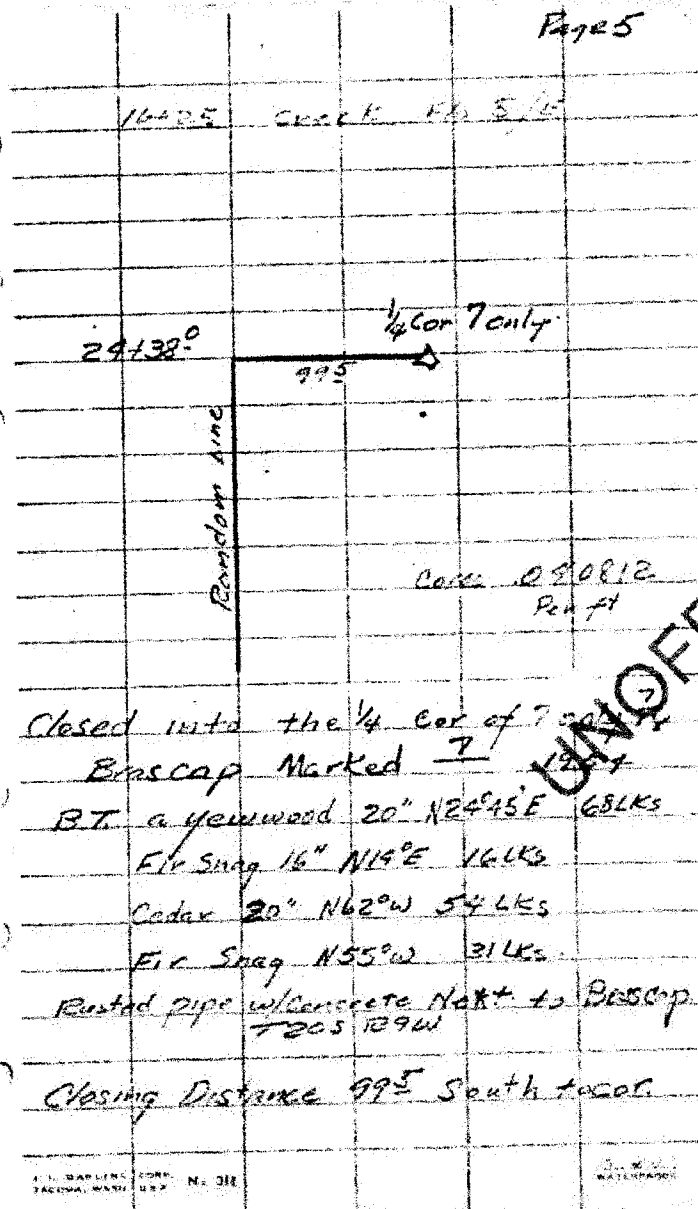 Page 5
16+25 Creek
1/4 Cor 7 only
24+38⁰
99⁵
Random Line
080812
Per ft
Closed into the 1/4 Cor of 7
Brascap Marked 7
B.T. a yewwood 20" N24°45'E 68LKs
Fir Snag 16" N14°E 16LKs
Cedar 20" N62°W 54 LKs
Fir Snag N55°W 31LKs
Rusted pipe w/Concrete Next to Brascap
T20S R9W
Closing Distance 99⁵ South to cor.
TACOMA, WASH. U.S.A. No. 311
UNOFF